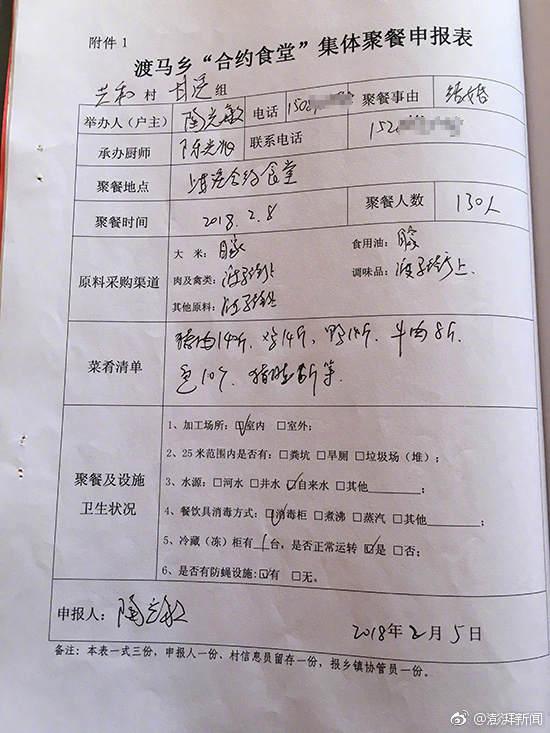 附件 1
渡马乡“合约食堂”集体聚餐申报表
共和 村 组
举办人（户主） 陶 敏 电话 150 聚餐事由 结婚
承办厨师 陈光 联系电话 152
聚餐地点 合约食堂
聚餐时间 2018.2.8 聚餐人数 130人
原料采购渠道
大 米： 自家 食用油： 自家
肉及禽类： 街上 调味品： 街上
其他原料： 街上
菜肴清单
猪肉140斤、鸡14斤、鸭14斤、牛肉8斤
鱼10个、猪肚 斤等
聚餐及设施
卫生状况
1、加工场所：☑室内 □室外；
2、25 米范围内是否有：□粪坑 □旱厕 □垃圾场（堆）；
3、水源：□河水 □井水 ☑自来水 □其他________；
4、餐饮具消毒方式：☑消毒柜 □煮沸 □蒸汽 □其他________；
5、冷藏（冻）柜有 1 台，是否正常运转 ☑是 □否；
6、是否有防蝇设施：☑有 □无。
申报人： 陶 敏
2018年2月5日
备注：本表一式三份，申报人一份、村信息员留存一份，报乡镇协管员一份。
@澎湃新闻